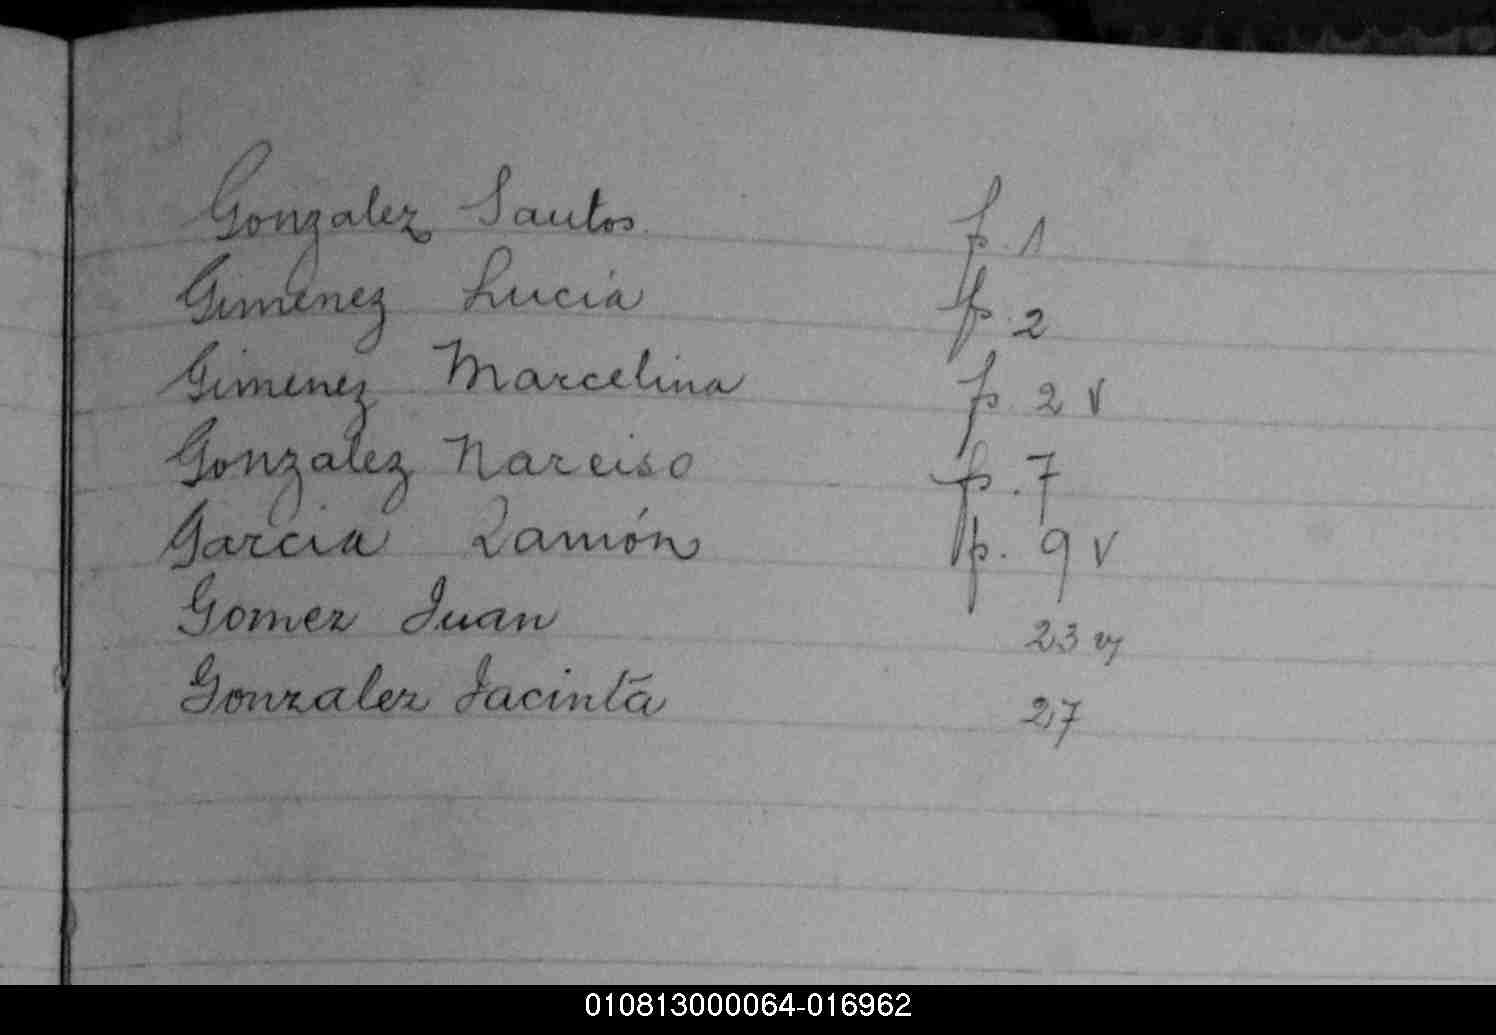 Gonzalez Santos p. 1
Gimenez Lucia p. 2
Gimenez Marcelina p. 2 v
Gonzalez Narciso p. 7
Garcia Ramón p. 9 v
Gomez Juan 23 v
Gonzalez Jacinta 27
010813000064-016962